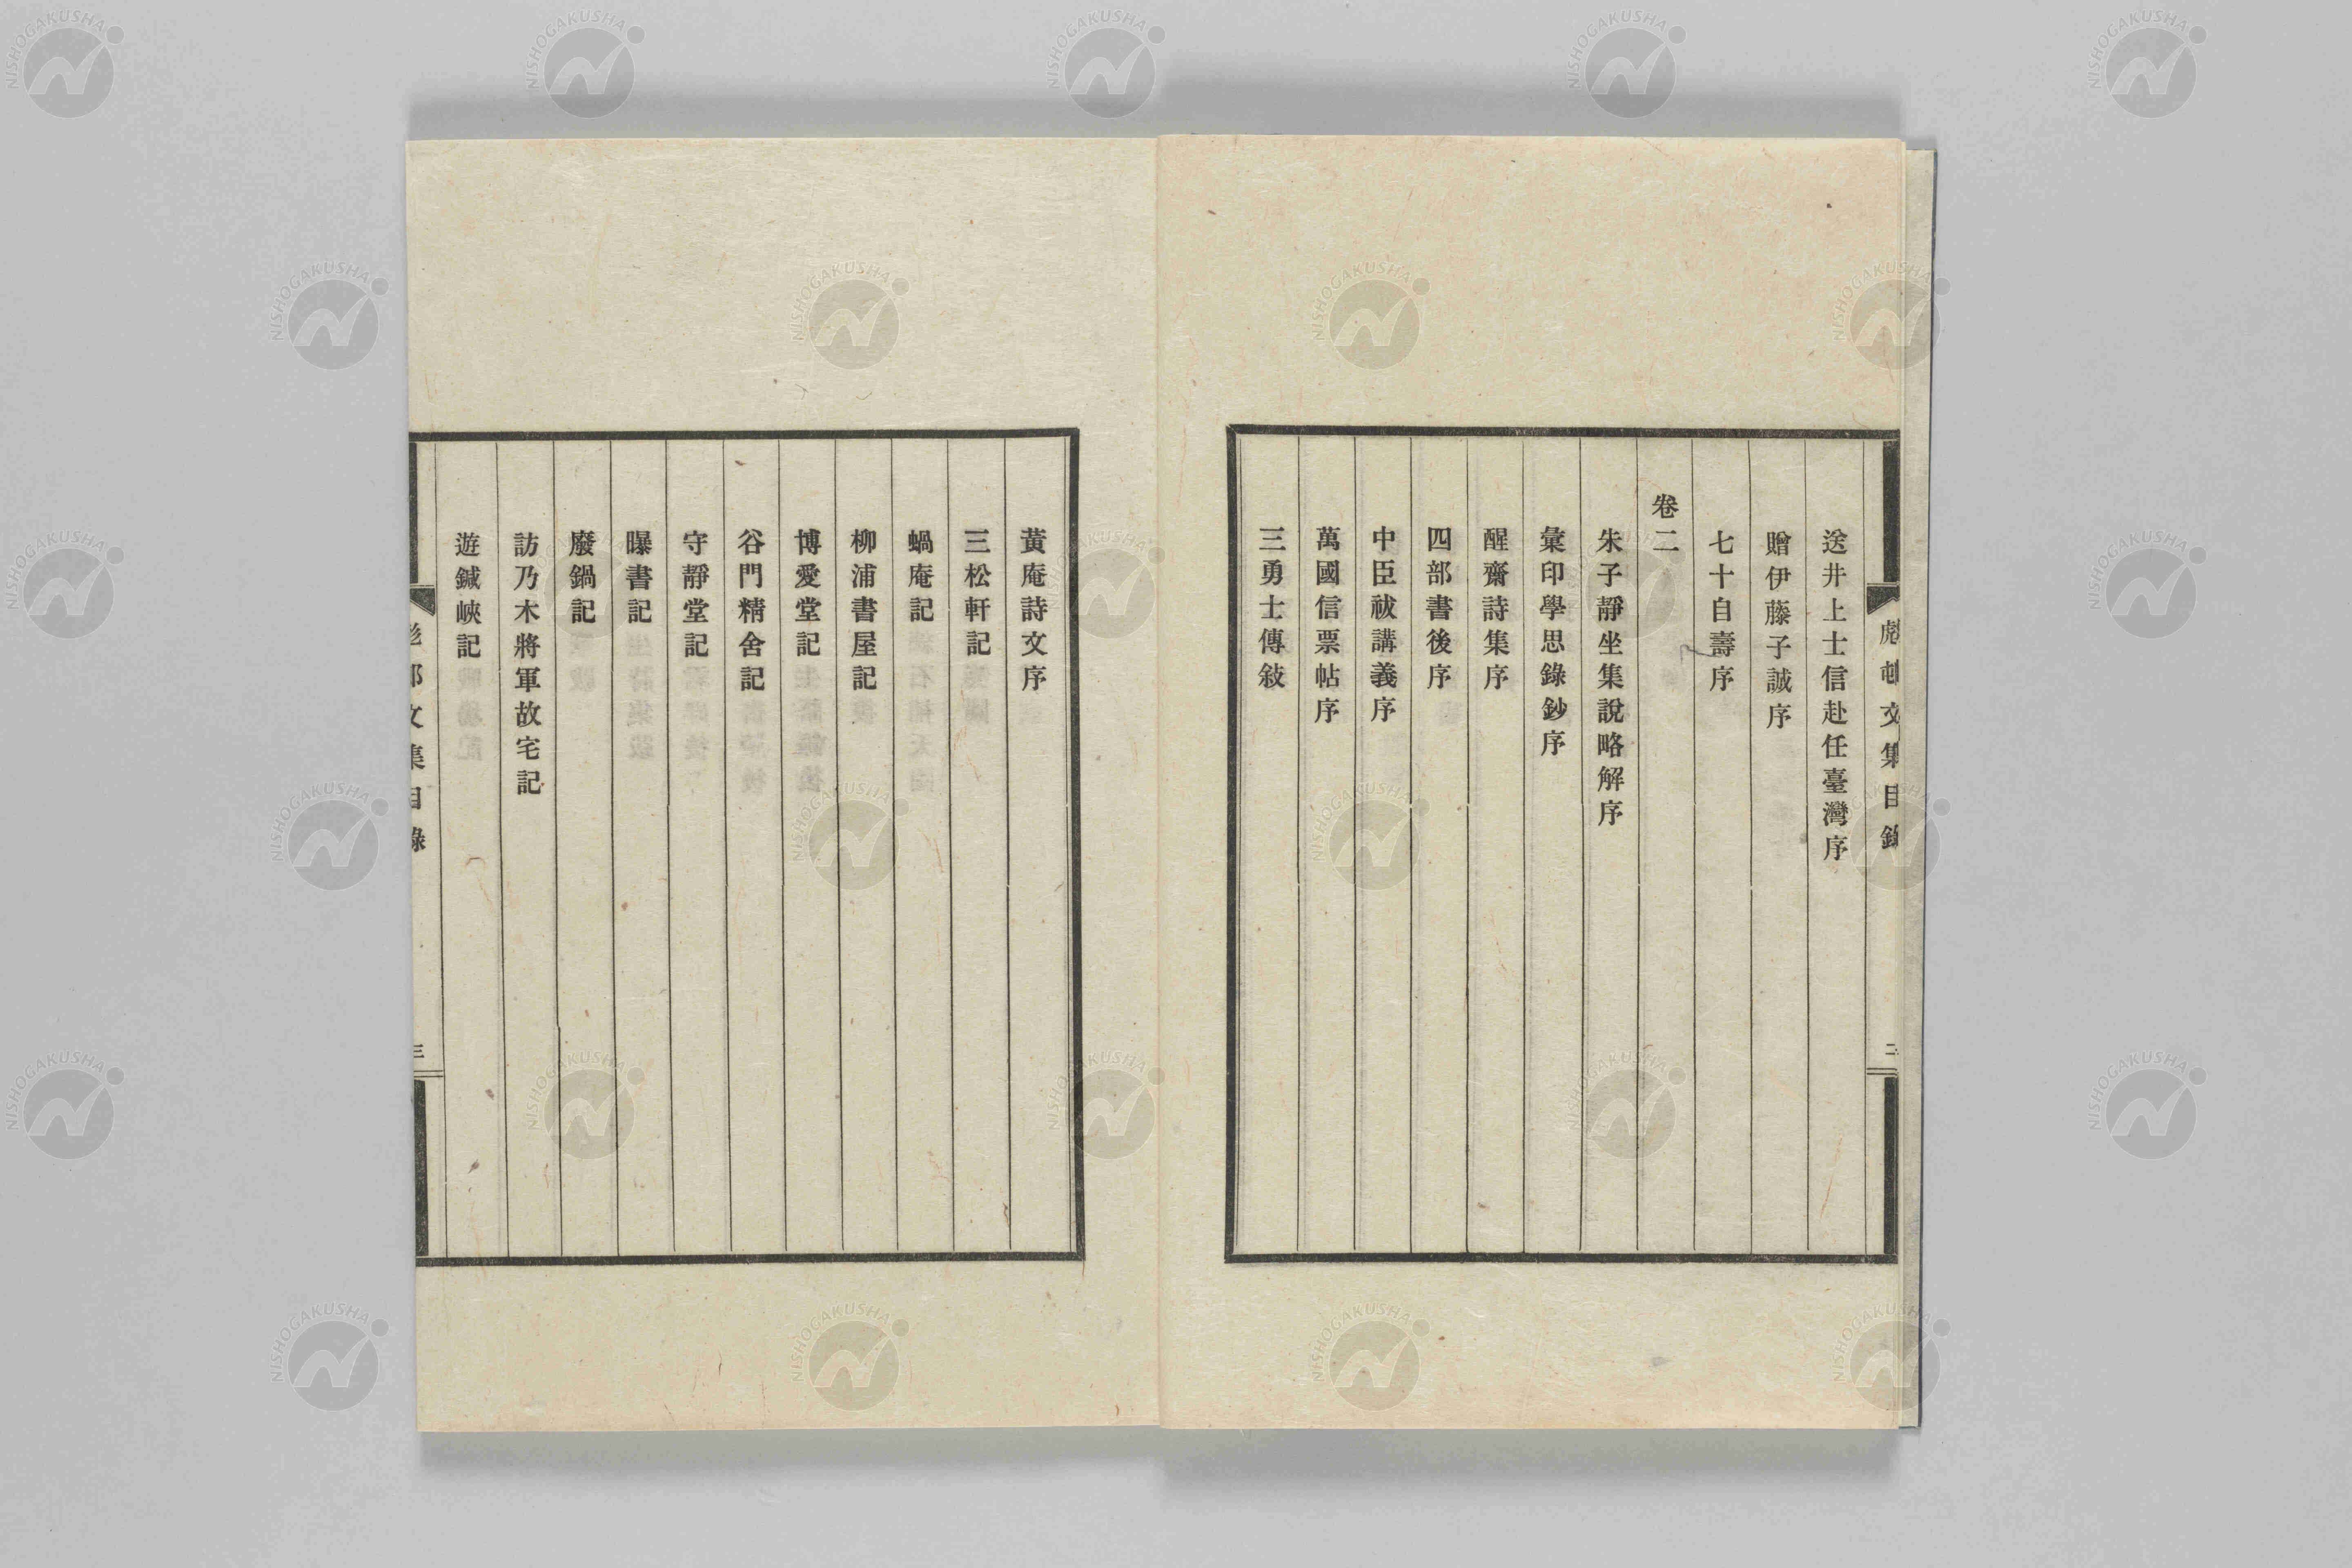 送井上士信赴任臺灣序
贈伊藤子誠序
七十自壽序
卷二
朱子靜坐集說略解序
彙印學思錄鈔序
醒齋詩集序
四部書後序
中臣祓講義序
萬國信票帖序
三勇士傳敍
黃庵詩文序
三松軒記
蝸庵記
柳浦書屋記
博愛堂記
谷門精舍記
守靜堂記
曝書記
廢鍋記
訪乃木將軍故宅記
遊鍼峽記
文集目錄
二
三
NISHOGAKUSHA